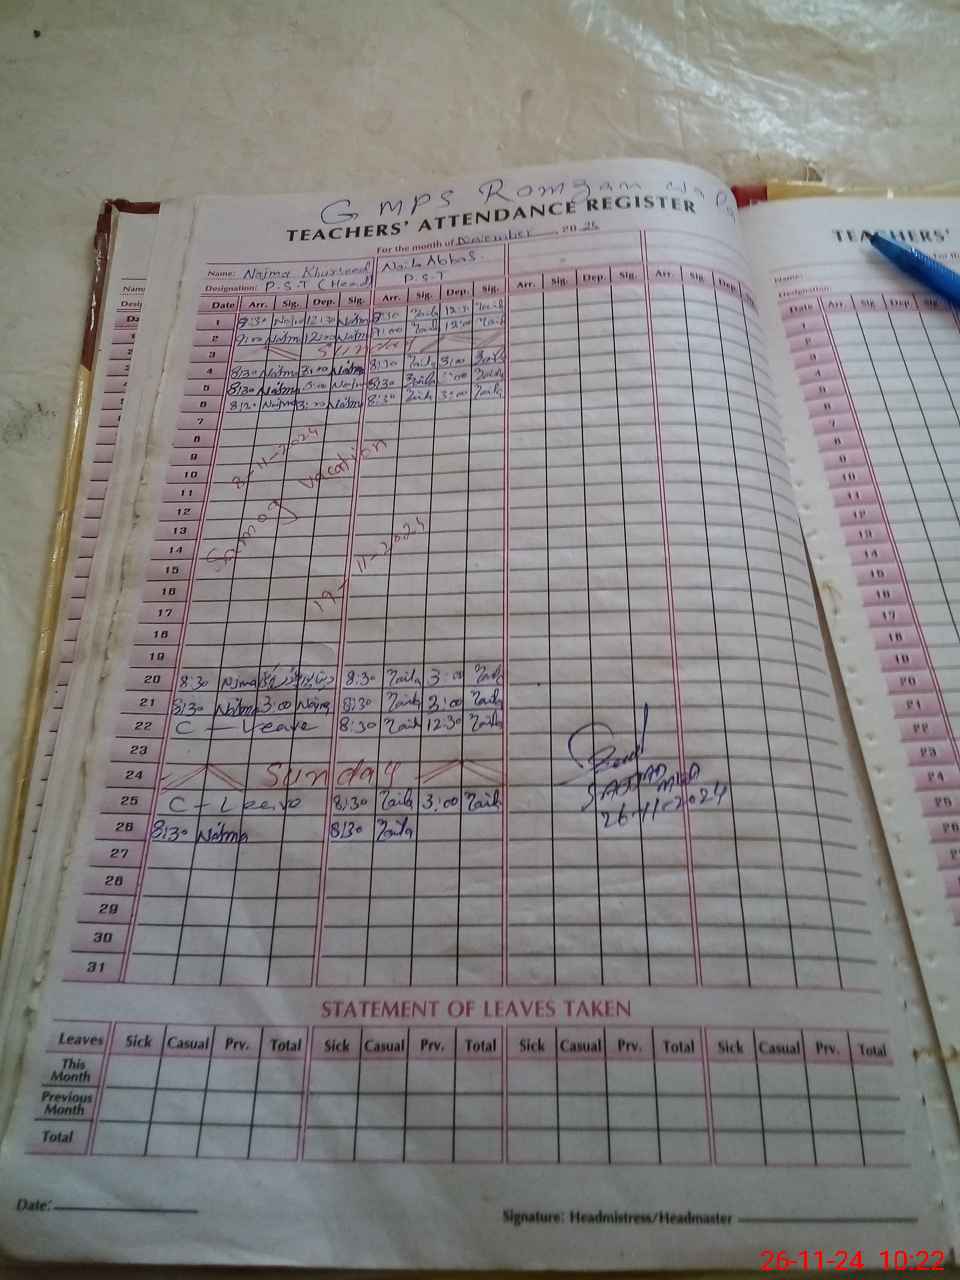 G MPS Romzan wala
TEACHERS' ATTENDANCE REGISTER
For the month of November 20
Name: Najma Khursheed Naila Abbas
Designation: P.S.T (Head) P.S.T
Date Arr. Sig. Dep. Sig. Arr. Sig. Dep. Sig. Arr. Sig. Dep. Sig. Arr. Sig. Dep.
1 8:30 Najma 12:30 Najma 8:30 Naila 12:30 Naila
2 9:00 Najma 12:00 Najma 9:00 Naila 12:00 Naila
3 Sunday
4 8:30 Najma 3:00 Najma 8:30 Naila 3:00 Naila
5 8:30 Najma 3:00 Najma 8:30 Naila 3:00 Naila
6 8:30 Najma 3:00 Najma 8:30 Naila 3:00 Naila
7
8
9
10
11
12
13
14
15
16
17
18
19
8-11-2024
Samog vacation
19-11-2024
20 8:30 Najma 8:30 Naila 3:00 Naila
21 8:30 Najma 3:00 Najma 8:30 Naila 3:00 Naila
22 C - Leave 8:30 Naila 12:30 Naila
23
24 Sunday
25 C - Leave 8:30 Naila 3:00 Naila
26 8:30 Najma 8:30 Naila
27
28
29
30
31
26-11-2024
STATEMENT OF LEAVES TAKEN
Leaves Sick Casual Prv. Total Sick Casual Prv. Total Sick Casual Prv. Total Sick Casual Prv. Total
This Month
Previous Month
Total
Date:
Signature: Headmistress/Headmaster
TEACHERS'
Name:
Designation:
Date Arr. Sig. Dep. Sig.
1
2
3
4
5
6
7
8
9
10
11
12
13
14
15
16
17
18
19
20
21
22
23
24
25
26
26-11-24 10:22